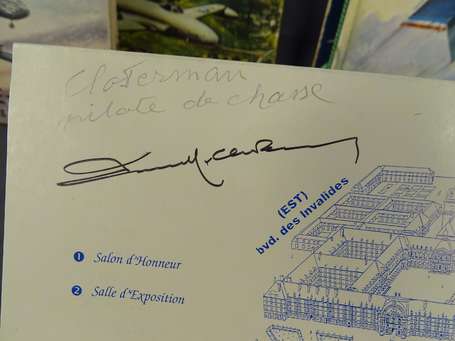 Closterman
pilote de chasse
(EST)
bvd. des Invalides
1 Salon d'Honneur
2 Salle d'Exposition